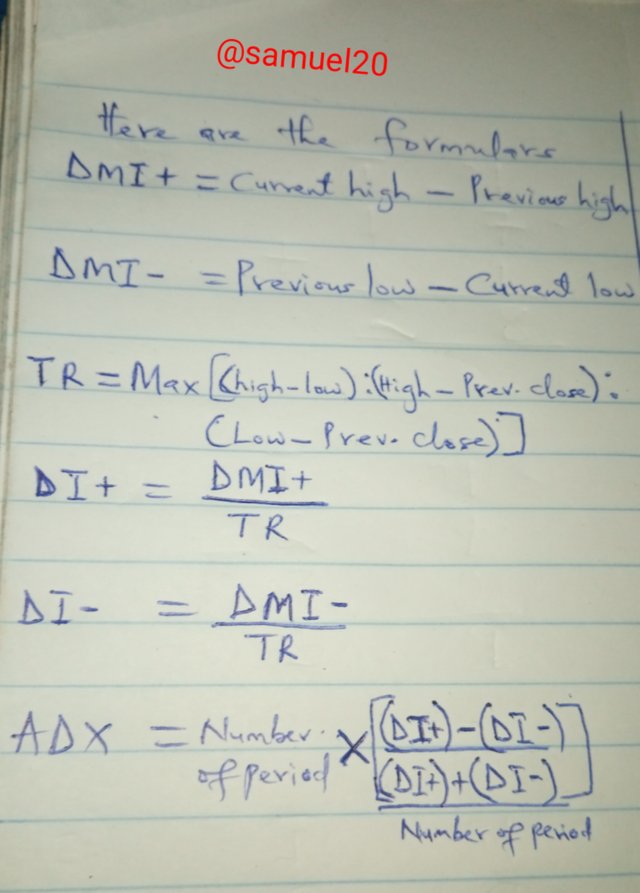 @samuel20
Here are the formulars
DMI+ = Current high - Previous high
DMI- = Previous low - Current low
TR = Max [(high-low):(High - Prev. close):
(Low - Prev. close)]
DI+ = DMI+
TR
DI- = DMI-
TR
ADX = Number of period × [(DI+)-(DI-)
(DI+)+(DI-)]
Number of period